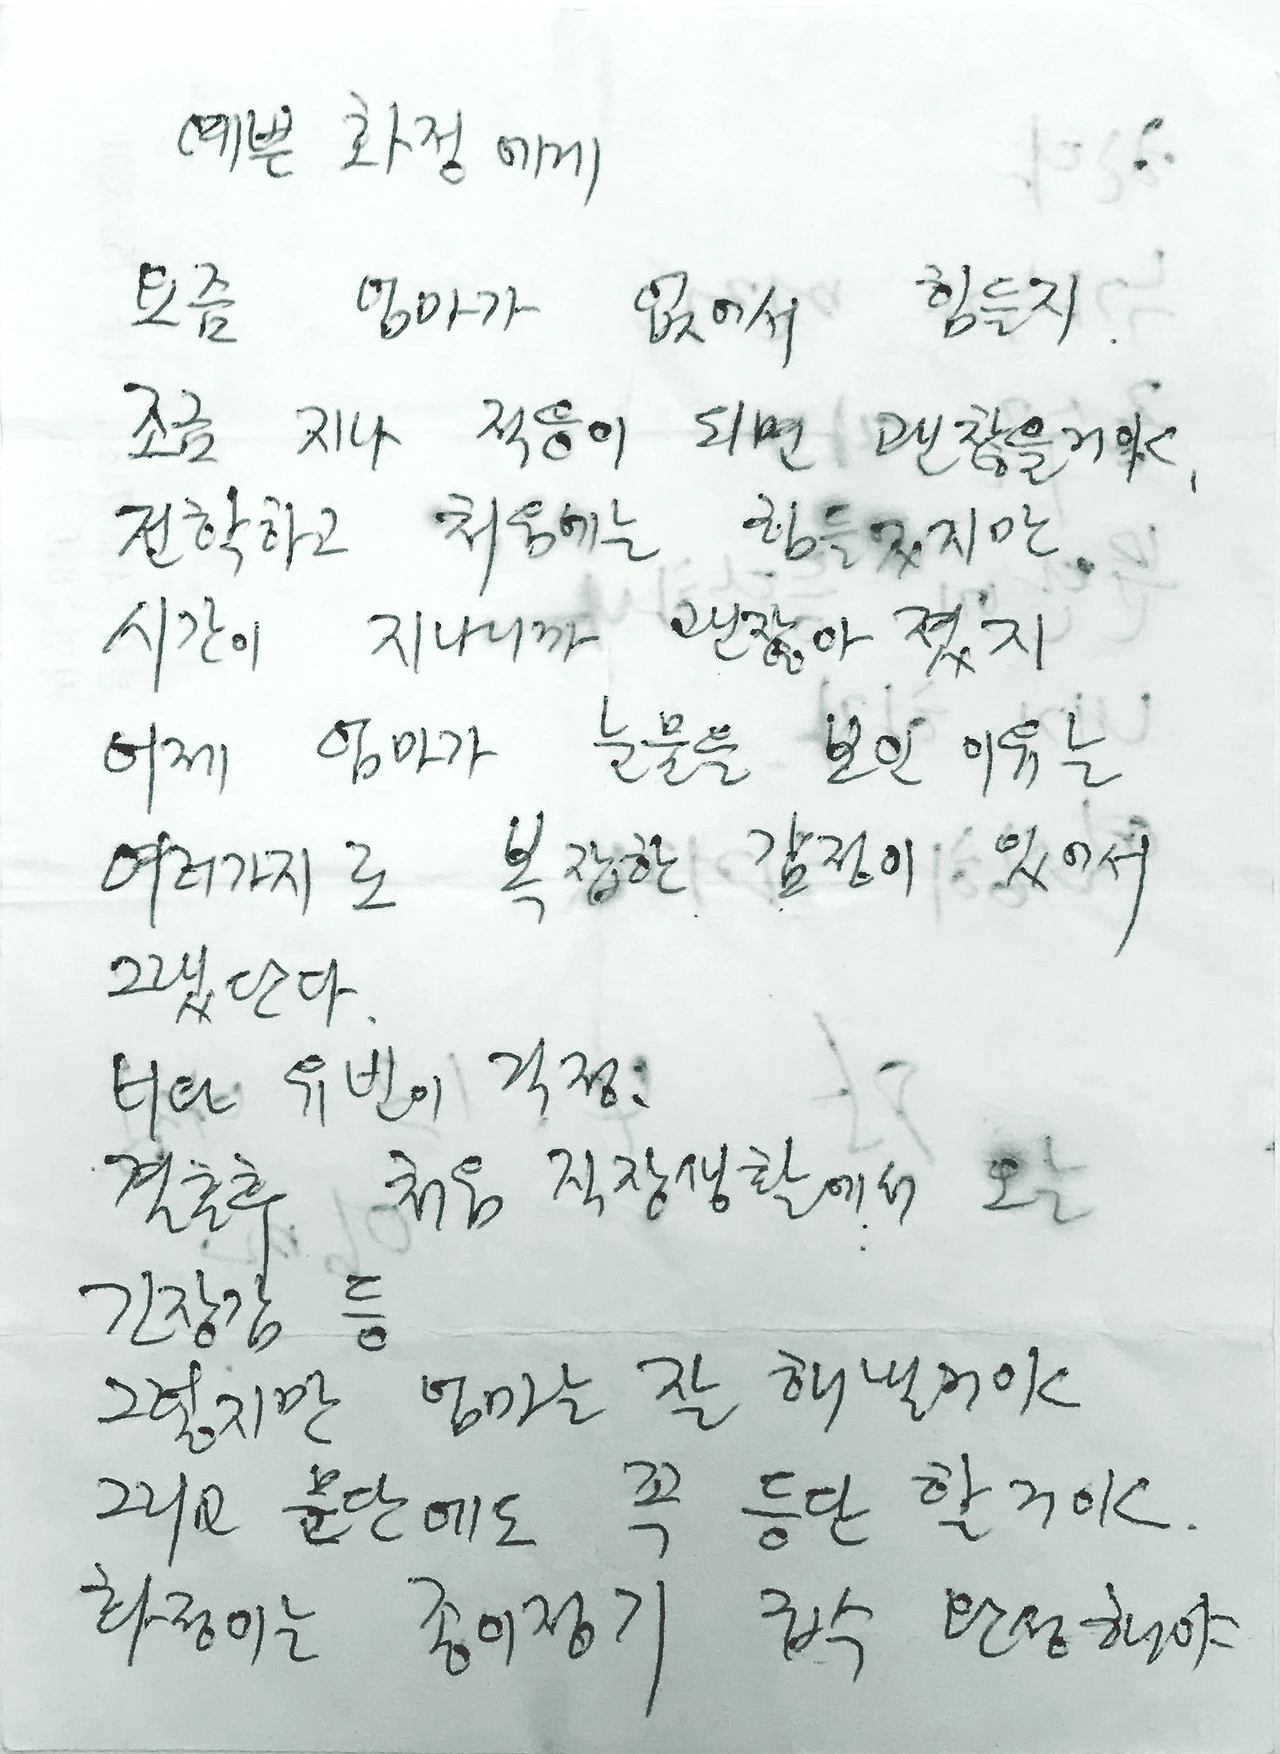 예쁜 화정에게
요즘 엄마가 없어서 힘들지.
조금 지나 적응이 되면 괜찮을거야,
전학하고 처음에는 힘들었지만
시간이 지나니까 괜찮아 졌지
어제 엄마가 눈물을 보인 이유는
여러가지로 복잡한 감정이 있어서
그랬단다.
너와 유빈이 걱정:
결혼후 처음 직장생활에서 오는
긴장감 등
그렇지만 엄마는 잘 해낼거야
그리고 문단에도 꼭 등단 할거야.
화정이는 종이접기 급수 완성해야